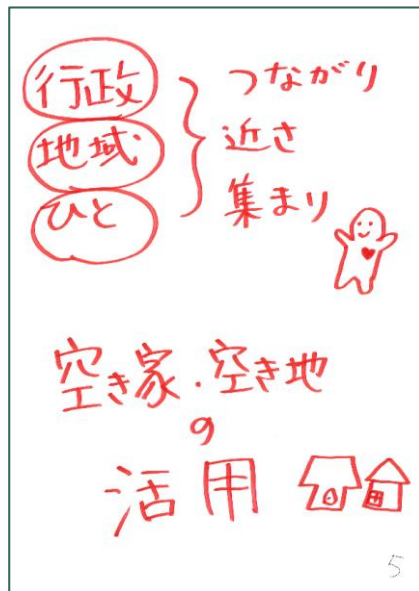 行政
地域
ひと
つながり
近さ
集まり
空き家・空き地
の
活用
5